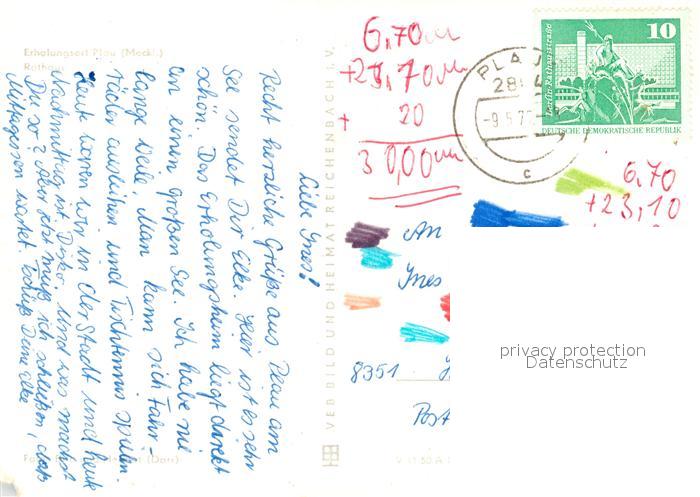 Erholungsort Plau (Meckl.)
Liebe Ines!
Recht herzliche Grüße aus Plau am
See sendet Dir Elke. Hier ist es sehr
schön. Das Erholungsheim liegt direkt
an einem großen See. Ich habe nie
lange weile. Man kann sich Fahr-
räder ausleihen und Tischtennis spielen.
Heute waren wir in der Stadt und heute
Nachmittag ist Disko. Und was machst
Du so? Aber jetzt muß ich schließen, das
Mittagessen wartet. Tschüß Deine Elke
VEB BILD UND HEIMAT REICHENBACH i. V.
6,70
+
20
30,00
PLAU
-9.5.7
c
10
Berlin-Rathausstraße
DEUTSCHE DEMOKRATISCHE REPUBLIK
6,70
+23,10
An
Ines
8351
Post
privacy protection
Datenschutz